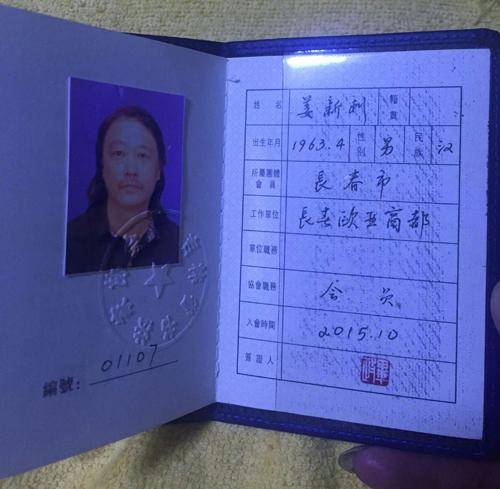 編號：01107
姓名 姜新利 籍貫
出生年月 1963.4 性別 男 民族 汉
所屬團體會員 長春市
工作單位 長春欧亚商都
單位職務
協會職務 会员
入會時間 2015.10
簽證人